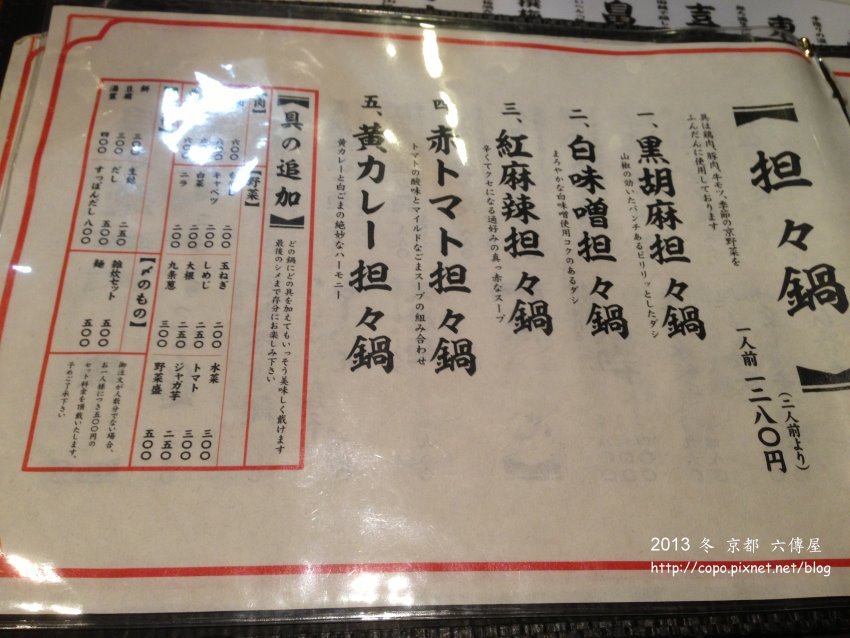 担々鍋
一人前 一二八〇円
(二人前より)
具は鶏肉、豚肉、牛モツ、季節の京野菜を
ふんだんに使用しております
一、黒胡麻担々鍋
山椒の効いたパンチあるピリリッとしたダシ
二、白味噌担々鍋
まろやかな白味噌使用コクのあるダシ
三、紅麻辣担々鍋
辛くてクセになる通好みの真っ赤なスープ
四、赤トマト担々鍋
トマトの酸味とマイルドなごまスープの組み合わせ
五、黄カレー担々鍋
黄カレーと白ごまの絶妙なハーモニー
【具の追加】
どの鍋にどの具を加えてもいっそう美味しく戴けます
最後のシメまで存分にお楽しみ下さい
肉】
六〇〇
【野菜】
キャベツ 二〇〇
白菜 二〇〇
ニラ 二〇〇
玉ねぎ 二〇〇
しめじ 二五〇
大根 二五〇
九条葱 三〇〇
水菜 三〇〇
トマト 三〇〇
ジャガ芋 二五〇
野菜盛 五〇〇
餅 三〇〇
豆腐 三〇〇
湯葉 四〇〇
生麩 二五〇
だし 五〇〇
すっぽんだし 八〇〇
【〆のもの】
雑炊セット 五〇〇
麺 五〇〇
御注文が人数分でない場合、
お一人様につき五〇〇円の
セット料金を頂戴いたします。
予めご了承下さい
2013 冬 京都 六傳屋
http://copo.pixnet.net/blog